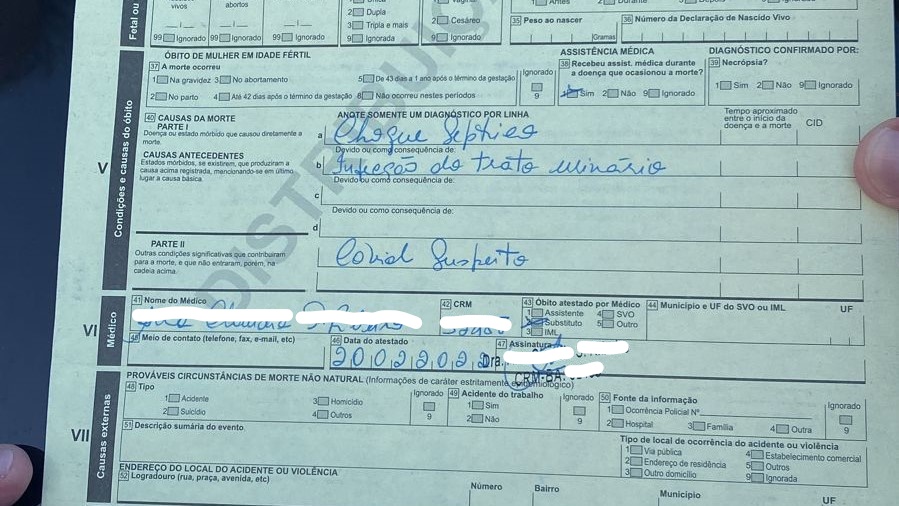 vivos
abortos
99 Ignorado 99 Ignorado 99 Ignorado
2 Dupla
3 Tripla e mais
9 Ignorada
2 Cesáreo
9 Ignorado
35 Peso ao nascer
Gramas
36 Número da Declaração de Nascido Vivo
Fetal ou
V
Condições e causas do óbito
ÓBITO DE MULHER EM IDADE FÉRTIL
37 A morte ocorreu
1 Na gravidez 3 No abortamento 5 De 43 dias a 1 ano após o término da gestação
2 No parto 4 Até 42 dias após o término da gestação 8 Não ocorreu nestes períodos
Ignorado
9
ASSISTÊNCIA MÉDICA
38 Recebeu assist. médica durante
a doença que ocasionou a morte?
Sim 2 Não 9 Ignorado
DIAGNÓSTICO CONFIRMADO POR:
39 Necrópsia?
1 Sim 2 Não 9 Ignorado
40 CAUSAS DA MORTE
PARTE I
Doença ou estado mórbido que causou diretamente a
morte.
CAUSAS ANTECEDENTES
Estados mórbidos, se existirem, que produziram a
causa acima registrada, mencionando-se em último
lugar a causa básica.
ANOTE SOMENTE UM DIAGNÓSTICO POR LINHA
Tempo aproximado
entre o início da
doença e a morte
CID
a Choque Séptico
Devido ou como consequência de:
b Infecção do trato urinário
Devido ou como consequência de:
c
Devido ou como consequência de:
d
PARTE II
Outras condições significativas que contribuíram
para a morte, e que não entraram, porém, na
cadeia acima.
Covid Suspeito
DISTRIBUIÇÃO
VI
Médico
41 Nome do Médico
42 CRM
43 Óbito atestado por Médico
1 Assistente 4 SVO
Substituto 5 Outro
3 IML
44 Município e UF do SVO ou IML
UF
Meio de contato (telefone, fax, e-mail, etc)
46 Data do atestado
2002202
47 Assinatura
Dra.
CRM-BA:
VII
Causas externas
PROVÁVEIS CIRCUNSTÂNCIAS DE MORTE NÃO NATURAL (Informações de caráter estritamente epidemiológico)
48 Tipo
1 Acidente 3 Homicídio
2 Suicídio 4 Outros
Ignorado
9
49 Acidente do trabalho
1 Sim
2 Não
Ignorado
9
50 Fonte da informação
1 Ocorrência Policial Nº
2 Hospital 3 Família 4 Outra
Ignorado
9
51 Descrição sumária do evento.
Tipo de local de ocorrência do acidente ou violência
1 Via pública 4 Estabelecimento comercial
2 Endereço de residência 5 Outros
3 Outro domicílio 9 Ignorada
ENDEREÇO DO LOCAL DO ACIDENTE OU VIOLÊNCIA
52 Logradouro (rua, praça, avenida, etc)
Número
Bairro
Município
UF